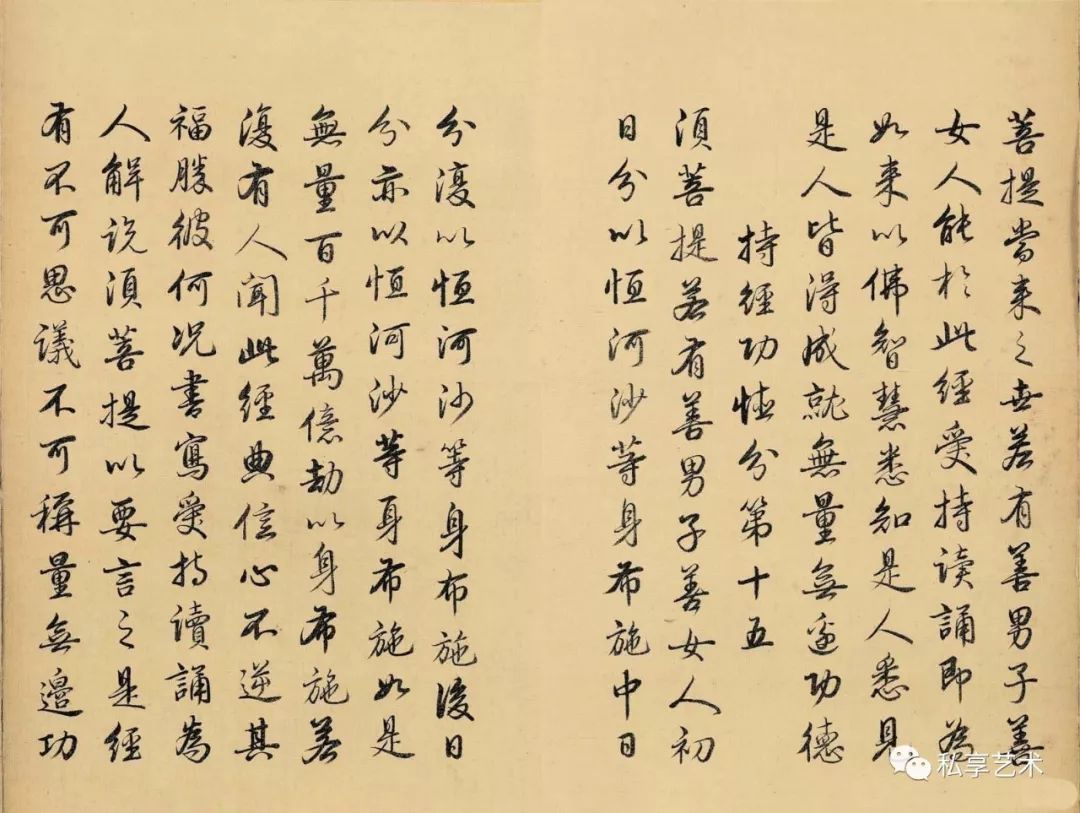 菩提當来之世若有善男子善
女人能於此經受持读誦即為
如来以佛智慧悉知是人悉見
是人皆得成就無量無邊功德
持經功德分第十五
須菩提若有善男子善女人初
日分以恒河沙等身布施中日
分復以恒河沙等身布施後日
分亦以恒河沙等身布施如是
無量百千萬億劫以身布施若
復有人聞此經典信心不逆其
福勝彼何况書寫受持讀誦為
人解説須菩提以要言之是經
有不可思議不可稱量無邊功
私享艺术